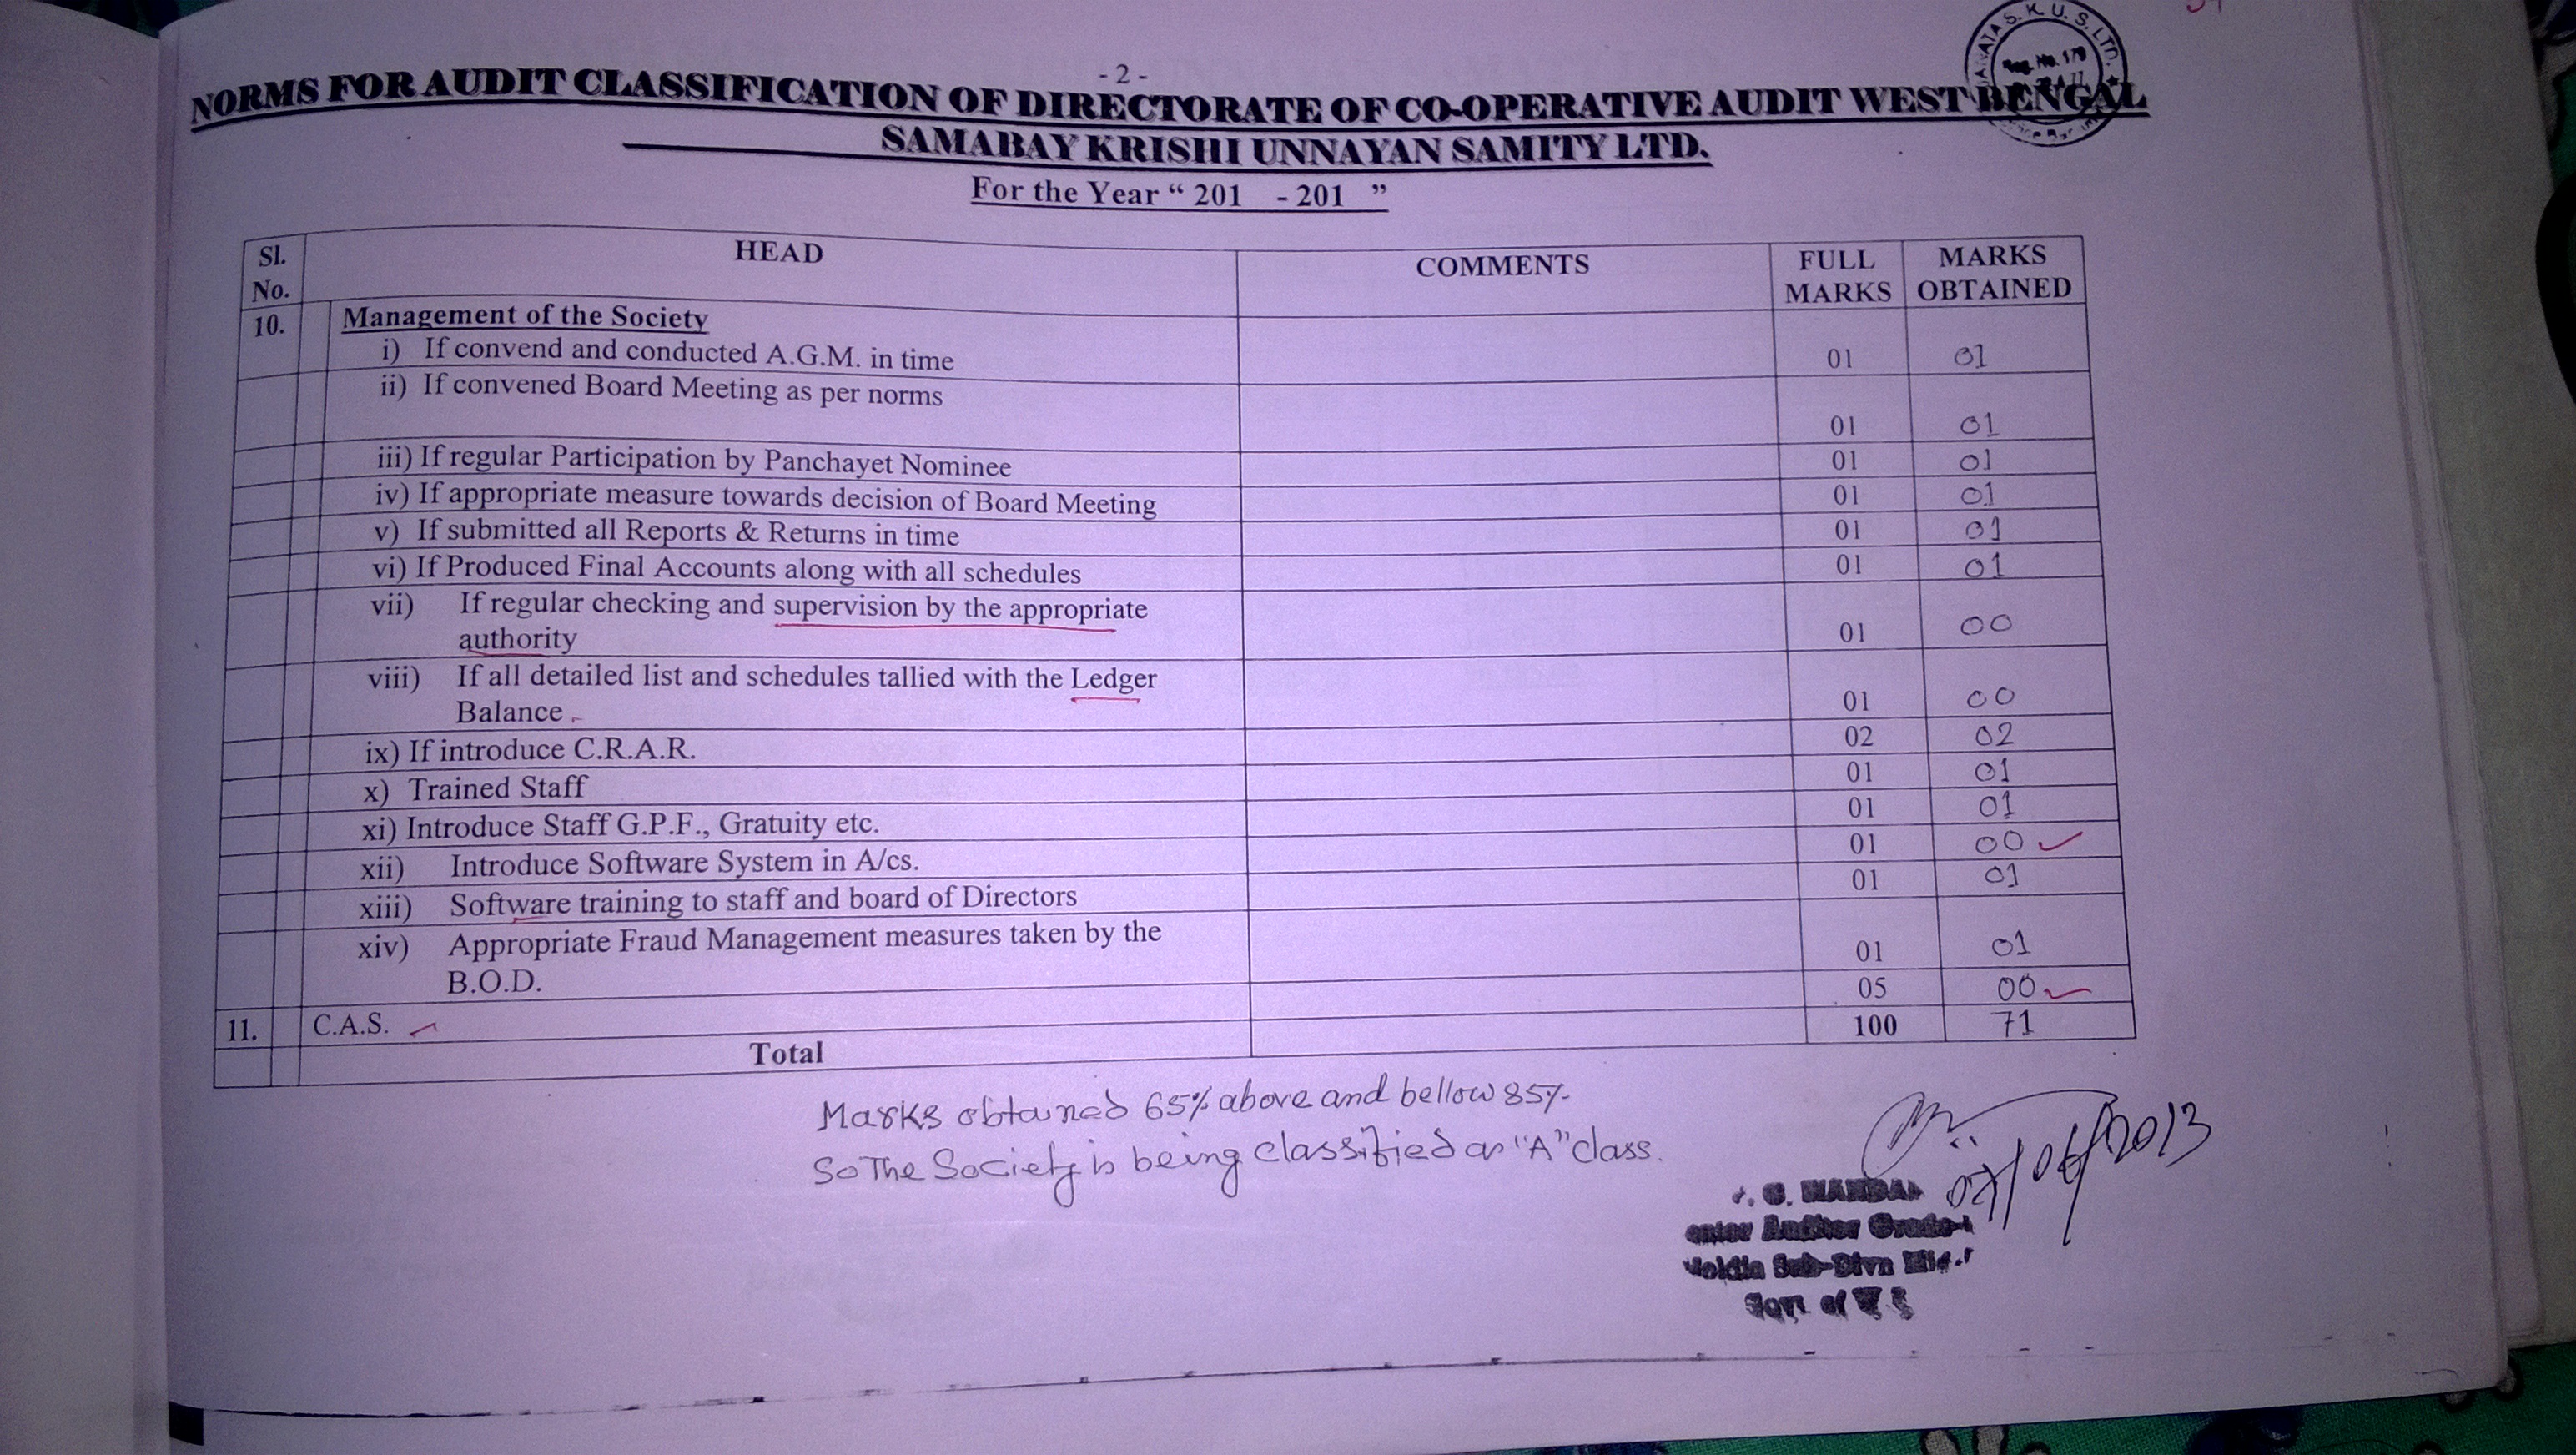 - 2 -
NORMS FOR AUDIT CLASSIFICATION OF DIRECTORATE OF CO-OPERATIVE AUDIT WEST BENGAL
SAMABAY KRISHI UNNAYAN SAMITY LTD.
For the Year “ 201 - 201 ”
S. K. U. S. LTD.
Reg. No. 179
Sl. No. HEAD COMMENTS FULL MARKS MARKS OBTAINED
10. Management of the Society
i) If convend and conducted A.G.M. in time 01 01
ii) If convened Board Meeting as per norms 01 01
iii) If regular Participation by Panchayet Nominee 01 01
iv) If appropriate measure towards decision of Board Meeting 01 01
v) If submitted all Reports & Returns in time 01 01
vi) If Produced Final Accounts along with all schedules 01 01
vii) If regular checking and supervision by the appropriate
authority 01 00
viii) If all detailed list and schedules tallied with the Ledger
Balance 01 00
ix) If introduce C.R.A.R. 02 02
x) Trained Staff 01 01
xi) Introduce Staff G.P.F., Gratuity etc. 01 01
xii) Introduce Software System in A/cs. 01 00
xiii) Software training to staff and board of Directors 01 01
xiv) Appropriate Fraud Management measures taken by the
B.O.D. 01 01
11. C.A.S. 05 00
Total 100 71
Marks obtained 65% above and bellow 85%.
So The Society is being classified as "A" class.
07/06/2013
Auditor Grade-I
Sub-Divn
Govt of W B